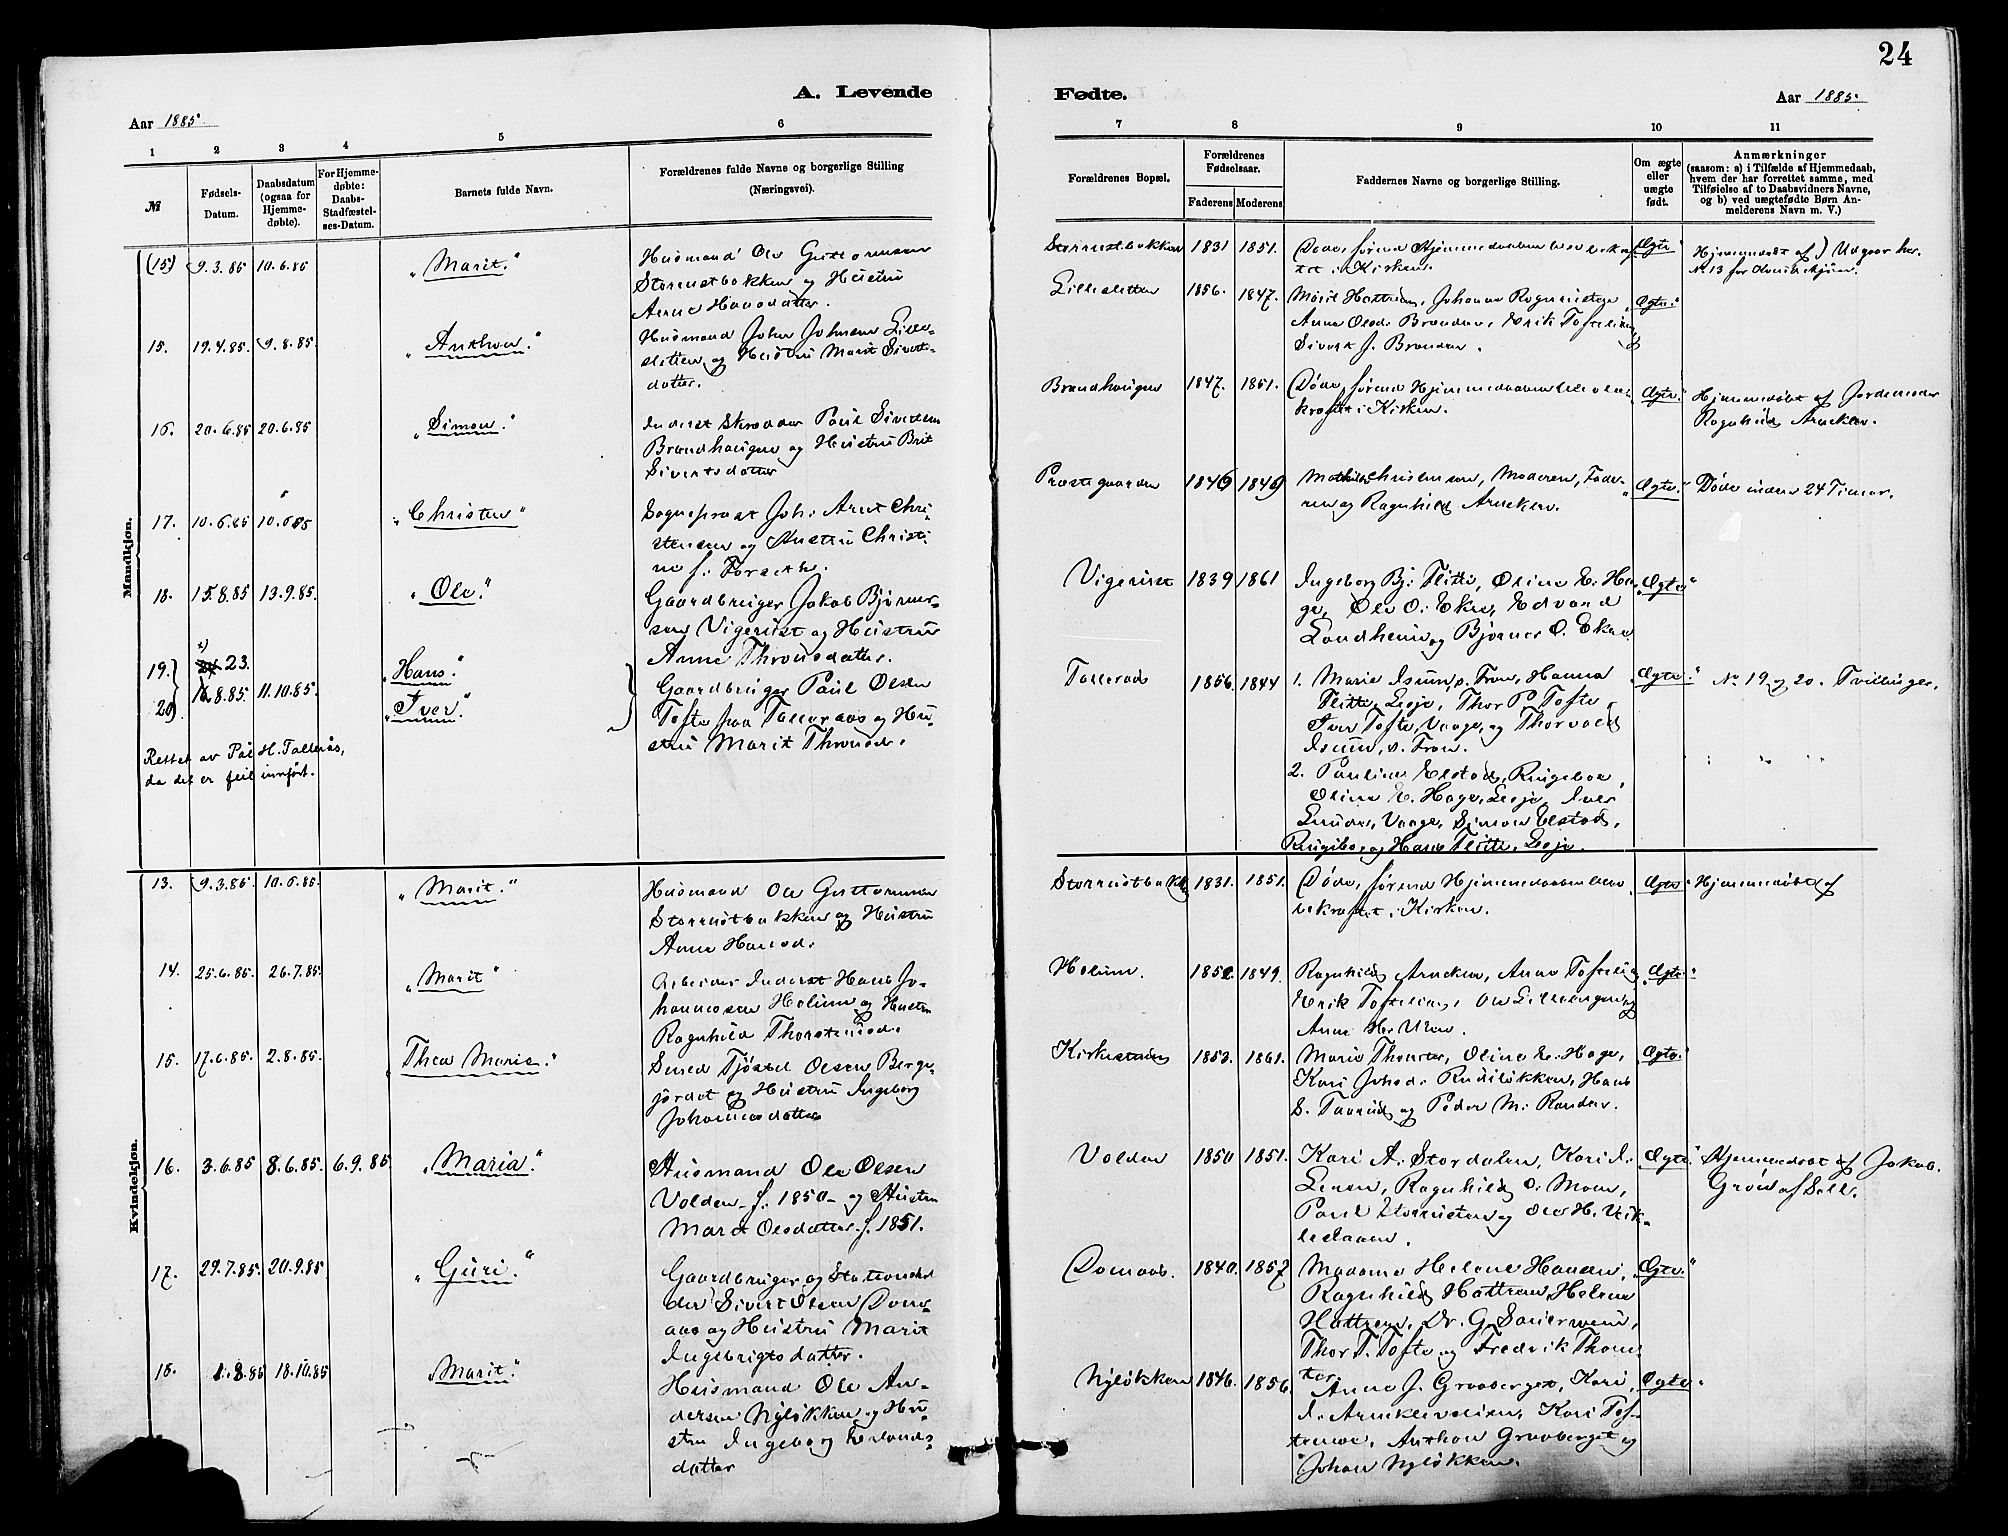 24
A. Levende Fødte.
Aar 1885.
Aar 1885.
1 2 3 4 5 6 7 8 9 10 11
№
Fødsels-Datum.
Daabsdatum (ogsaa for Hjemmedøbte).
For Hjemmedøbte: Daabs-Stadfæstelses-Datum.
Barnets fulde Navn.
Forældrenes fulde Navne og borgerlige Stilling
(Næringsvei).
Forældrenes Bopæl.
Forældrenes Fødselsaar.
Faderens Moderens
Faddernes Navne og borgerlige Stilling.
Om ægte eller uægte født.
Anmærkninger
(saasom: a) i Tilfælde af Hjemmedaab,
hvem der har forrettet samme, med
Tilføielse af to Daabsvidners Navne,
og b) ved uægtefødte Børn Anmelderens Navn m. V.)
Mandkjøn.
(15) 9.3.85 10.6.85 "Marit."
Husmand Ole Guttormsen
Storrustbakken og Hustru
Anne Hansdatter.
Storrustbakken 1831 1851. Døde, førend Hjemmedaaben blev bekræftet i Kirken. Ægte" Hjemmedøbt af ) Udgaar her.
No 13 for Qvindekjøn.
15. 19.4.85. 9.8.85. "Anthon."
Husmand John Johnsen Lilleslitten og Hustru Marit Sivertsdatter.
Lilleslitten 1856. 1847. Marit Hattrem, Johanne Rogneustøe
Anne Olsd. Branden, Erik Tofteli og
Sivert J. Branden. Ægte."
16. 20.6.85 20.6.85 "Simon."
Inderst Skrædder Paul Sivertsen
Brandhaugen og Hustru Brit
Sivertsdatter
Brandhaugen 1847. 1851. Døde, førend Hjemmedaaben blev bekræftet i Kirken. Ægte." Hjemmedøbt af Jordemoder
Ragnhild Arneklev.
17. 10.6.85 10.6.85 "Christen"
Sogneprest Joh. Arnt Christensen og Hustru Christine f. Forseth.
Præstegaarden 1846 1849 Mathilde Christensen, Moderen, Faderen og Ragnhild Arneklev. Ægte." Døde inden 24 Timer.
18. 15.8.85 13.9.85. "Ole."
Gaardbruger Jakob Bjørnersen Vigerust og Hustru
Anne Thronsdatter.
Vigerust 1839 1861 Ingeborg Bj. Flitte, Oline E. Hage, Ole O. Eken, Edvard
Landheim og Bjørner O. Eken "Ægte"
19.} x) 23. "Hans."
20} 8.85. 11.10.85. "Iver."
Gaardbruger Paul Olsen
Tofte paa Talleraas og Hustru Marit Thronsd.
Talleraas 1856. 1844 1. Marie Isum, s. Fron, Hanna
Flitte, Lesje, Thor P. Tofte,
Iver Tofte, Vaage, og Thorvald
Isum, s. Fron.
2. Pauline Elstad, Ringeboe,
Oline E. Hage, Lesje, Iver
Vaage, Simon Elstad,
Ringebo og Hans Flitte, Lesje. "Ægte." No 19 og 20. Tvillinger.
Rettet av Pål H. Tallerås,
da det er feil innført.
Kvindekjøn.
13. 9.3.85. 10.6.85. "Marit."
Husmand Ole Guttormsen
Storrustbakken og Hustru
Anne Hansd.
Storrustbakk 1831. 1851. Døde, førend Hjemmedaaben blev
bekræftet i Kirken. Ægte" Hjemmedøbt af
14. 25.6.85. 26.7.85. "Marit"
Arbeider Inderst Hans Johannesen Holum og Hustru
Ragnhild Thorstensd.
Holum. 1849. Ragnhild Arneklev, Anne Tofteli,
Erik Tofteli, Ole
Anne H. Uren. "Ægte"
15. 17.6.85 2.8.85. "Thea Marie."
Smed Tjøstel Olsen Bergejordet og Hustru Ingeborg
Johannesdatter
1853. 1861. Marie Thomter, Oline E. Hage,
Kari Johsd. Rudiløkken, Hans
S. Taarud og Peder M. Randen. Ægte."
16. 3.6.85 8.6.85. 6.9.85. "Maria."
Husmand Ole Olsen
Volden f. 1850 - og Hustru
Marit Olsdatter f. 1851.
Volden 1850 1851. Kari A. Stordalen, Kari I.
Lenen, Ragnhild O. Moen,
Paul Storrusten og Ole H. Ægte." Hjemmedøbt af Jakob
Grønaf Sell.
17. 29.7.85. 20.9.85. "Guri."
Gaardbruger og Stationsholder Sivert Olsen Domaas og Hustru Marit
Ingebrigtsdatter.
Domaas. 1840. 1857 Madame Helene Hansen,
Ragnhild Hattrem Helene
Hattrem, Dr. G. Sauerwein,
Thor T. Tofte og Fredrik Thomter. Ægte"
18. 1.8.85 18.10.85 "Marit."
Husmand Ole Andersen Nyløkken og Hustru Ingeborg Erlandsdatter
Nyløkken 1846. 1856. Anne J. Graaberget, Kari
I. Arneklevslien, Kari Toftemoe, Anthon Graaberget og
Johan Nyløkken. Ægte.